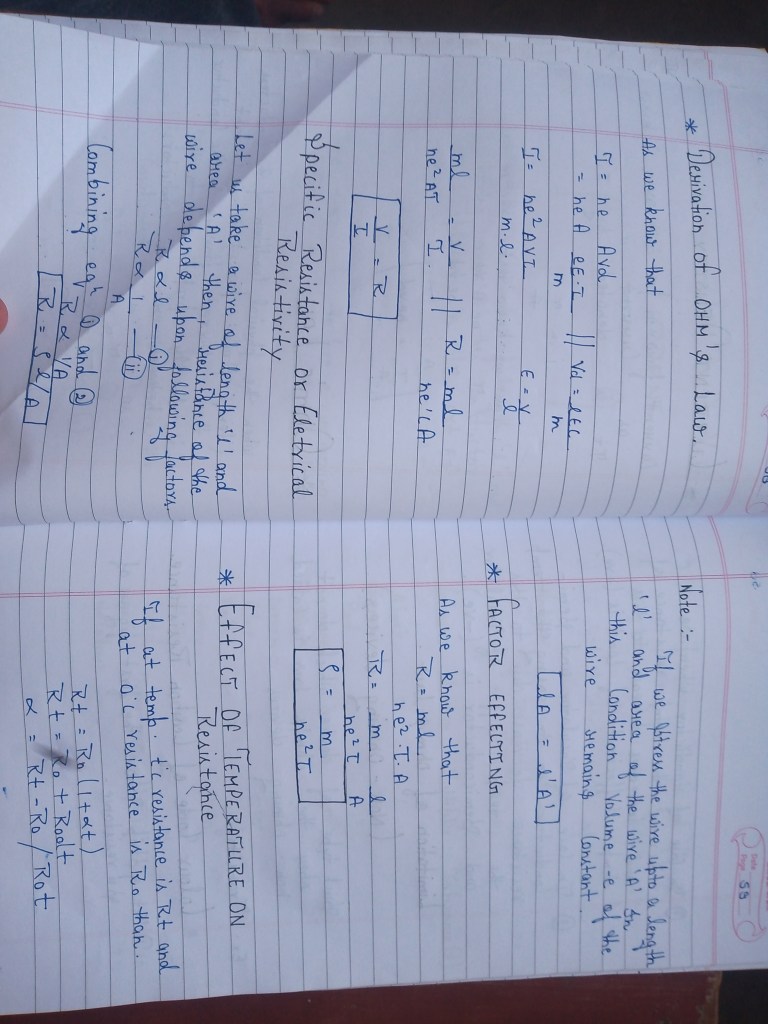 * Derivation of OHM's Law.
As we know that
I = ne Avd
= neA eE.τ/m || Vd = eEτ/m
I = ne²AVτ/m.l. E = V/l
ml/ne²Aτ = V/I. || R = ml/ne²τA
V/I = R
Specific Resistance or Eletrical
Resistivity
Let us take a wire of length 'l' and
area 'A' then, resistance of the
wire depends upon following factors.
R ∝ l — (i)
R ∝ 1/A — (ii)
Combining eqn ① and ②
R ∝ l/A
R = ρ l/A
59
Note :-
If we stress the wire upto a length
'l' and area of the wire 'A' in
this Condition Volume -e of the
wire remains Constant.
lA = l'A'
* FACTOR EFFECTING
As we know that
R = ml/ne².τ.A
R = m/ne²τ l/A
ρ = m/ne²τ.
* EFFECT OF TEMPERATURE ON
Resistance
If at temp. t°c resistance is Rt and
at 0°c resistance is R₀ than.
Rt = R₀(1+αt)
Rt = R₀ + R₀αt
α = Rt - R₀/R₀t